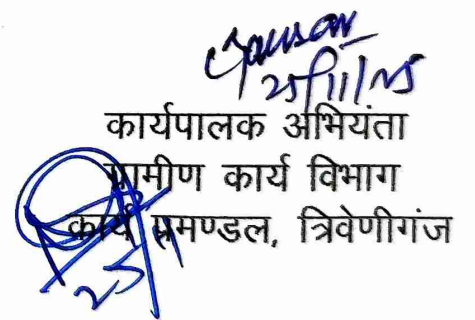 25/11/25
कार्यपालक अभियंता
ग्रामीण कार्य विभाग
कार्य प्रमण्डल, त्रिवेणीगंज